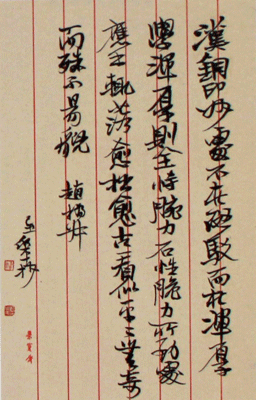 漢銅印妙處不在斑駁而在渾厚
學渾厚則全恃腕力石性脆力所到處
應手輒落愈拙愈古看似平平無奇
而殊不易貌 趙撝叔